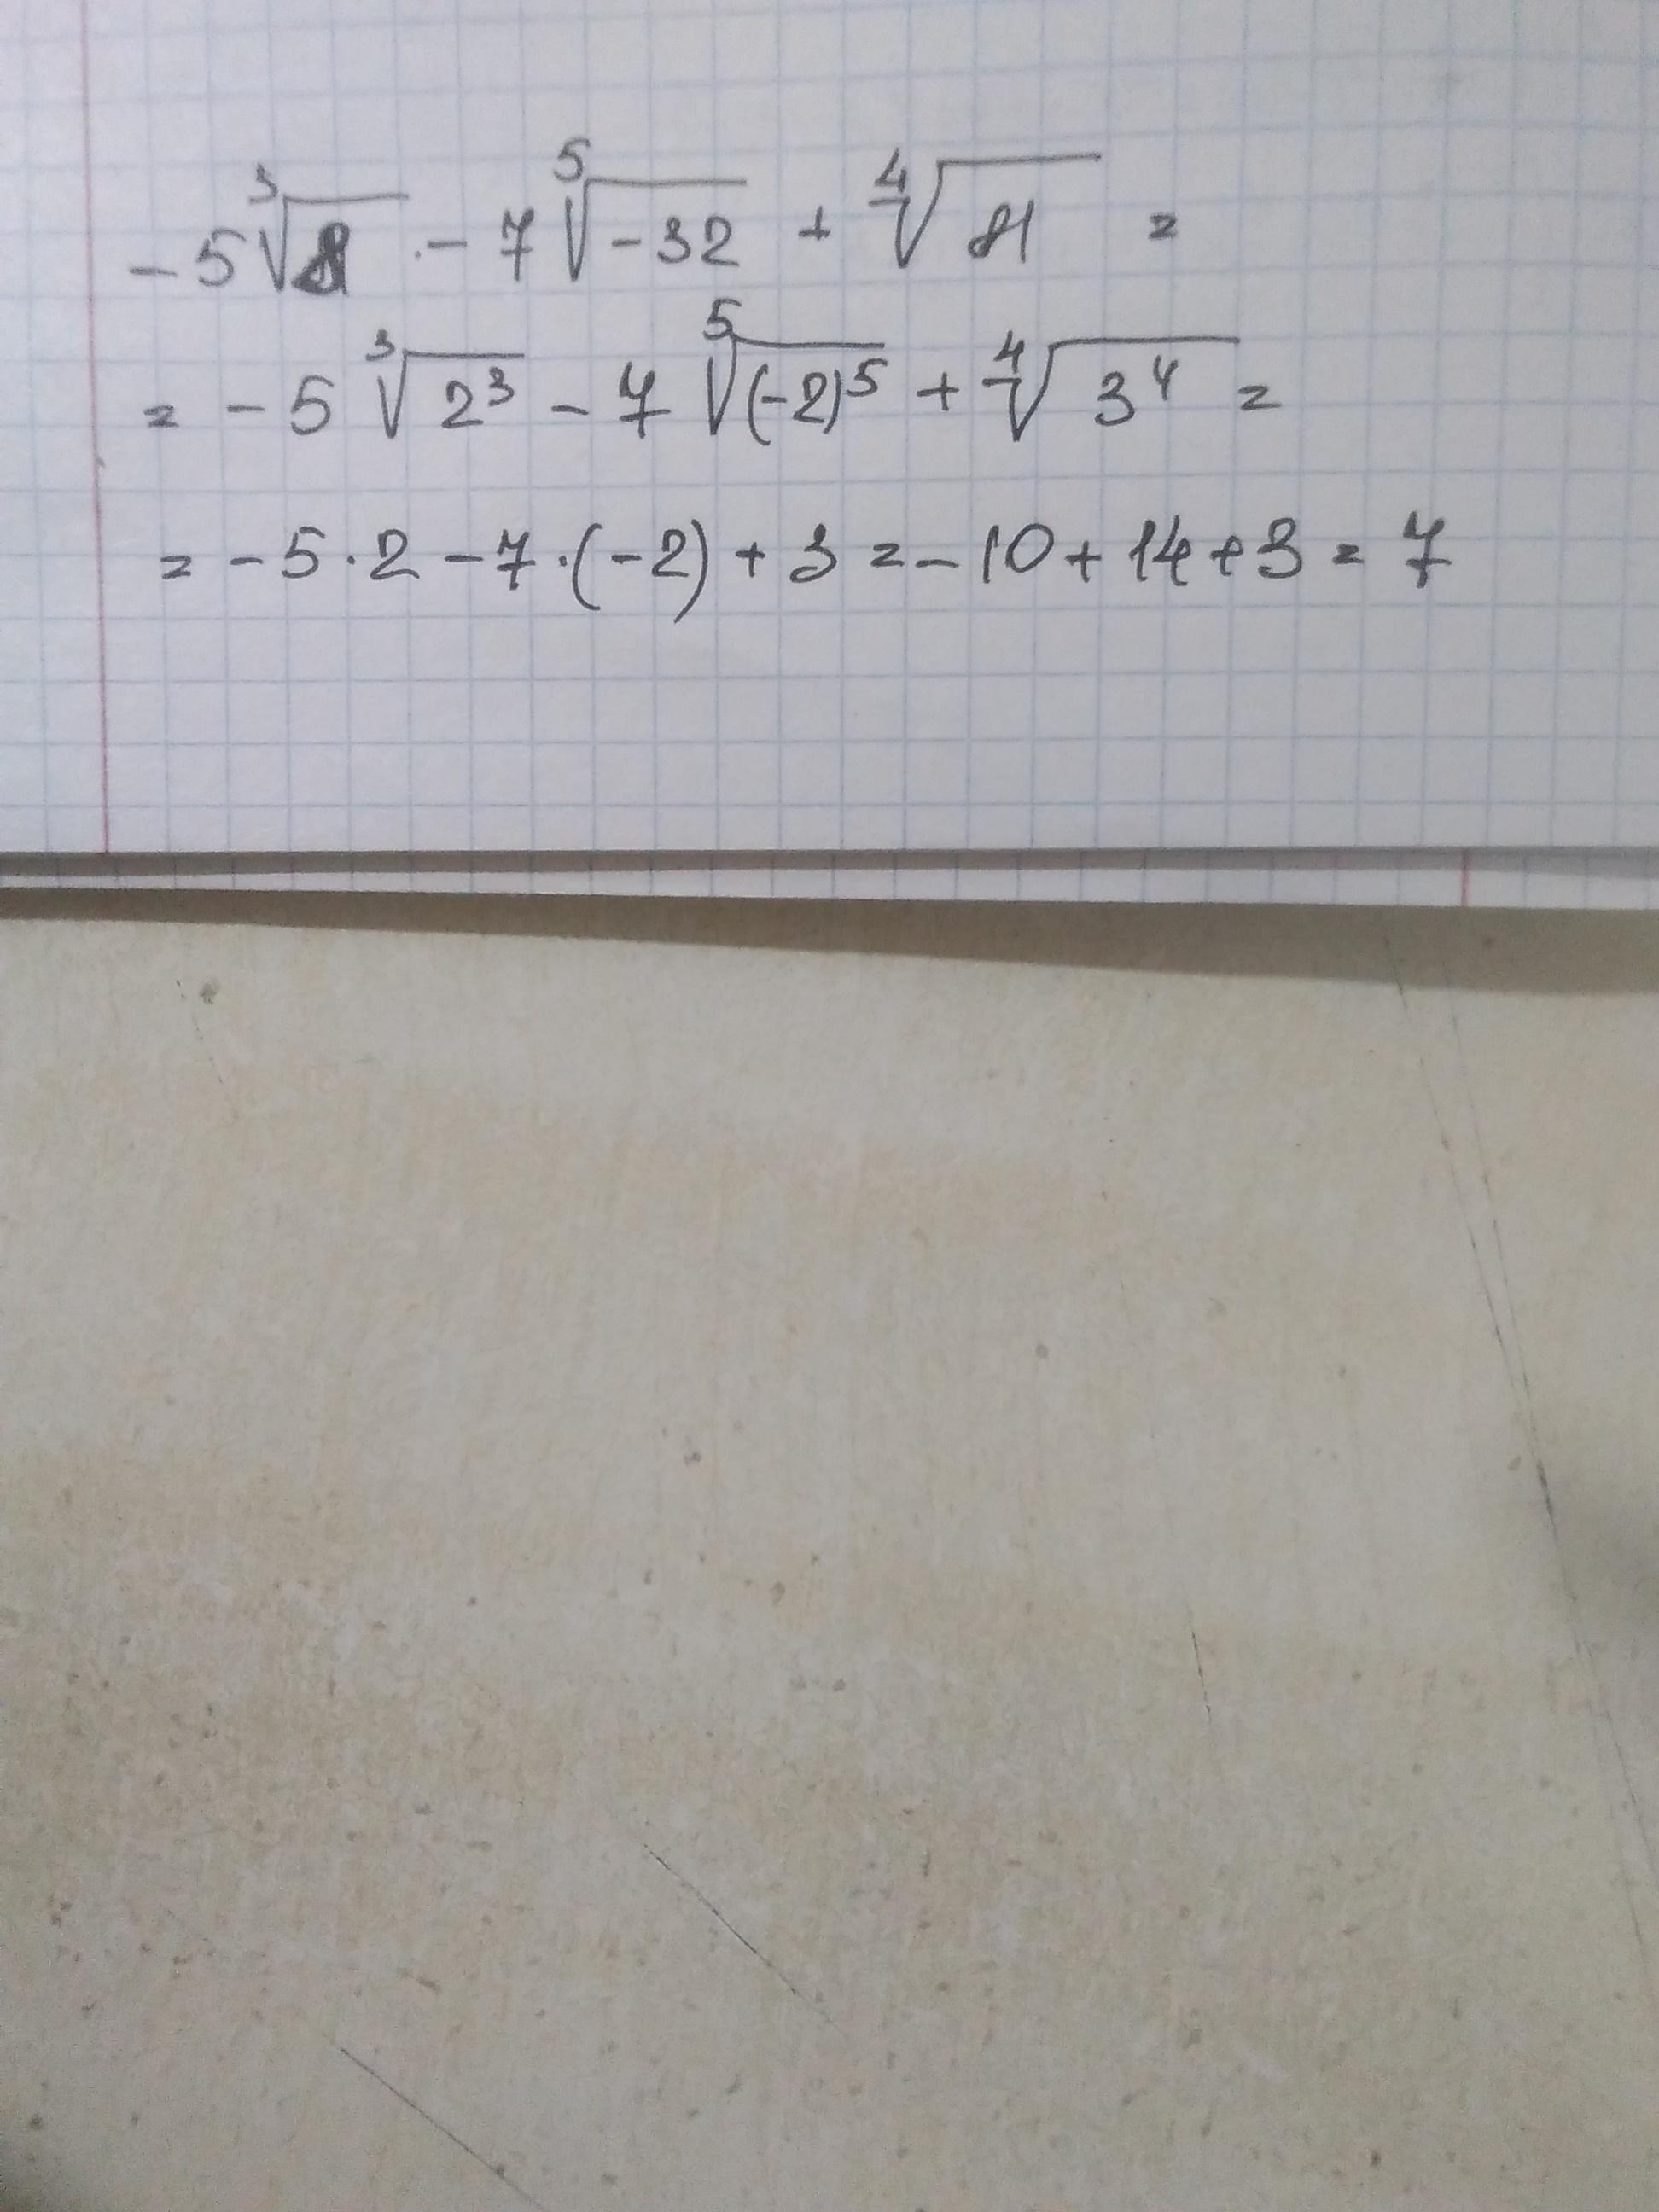 -5∛8 - 7⁵√-32 + ⁴√81 =
= -5 ∛2³ - 7 ⁵√(-2)⁵ + ⁴√3⁴ =
= -5·2 - 7·(-2) + 3 = -10 + 14 + 3 = 7